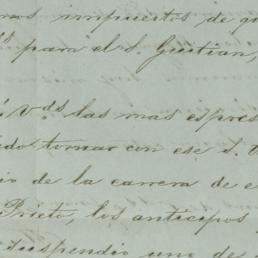 mos impuestos de qu
para el S. Guitian,
Vds las mas espres
do tomar con ese S. t
io de la carrera de e
Prieto, los anticipos
suspendio uno de